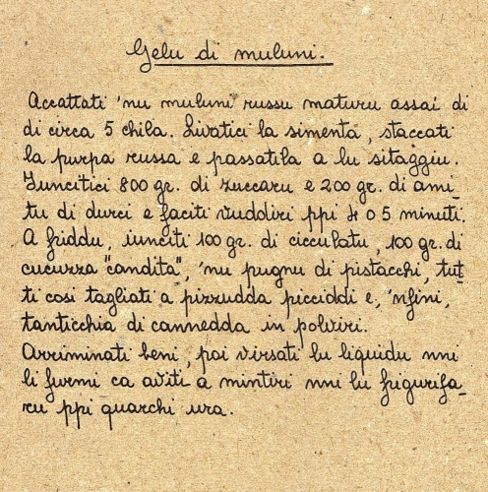 Gelu di muluni.
Accattati 'nu muluni russu maturu assai di
di circa 5 chila. Livatici la simenta, staccati
la purpa russa e passatila a lu sitazziu.
Iuncitici 800 gr. di zuccaru e 200 gr. di ami-
tu di durci e faciti vuddiri ppi 4 o 5 minuti.
A friddu, iunciti 100 gr. di cicculatu, 100 gr. di
cucuzza "candita", 'nu pugnu di pistacchi, tut-
ti così tagliati a pizzudda picciddi e, 'nfini,
tanticchia di cannedda in polviri.
Arriminati beni, poi virsati lu liquidu nni
li furmi ca aviti a mintiri nni lu frigurifa-
ru ppi quarchi ura.